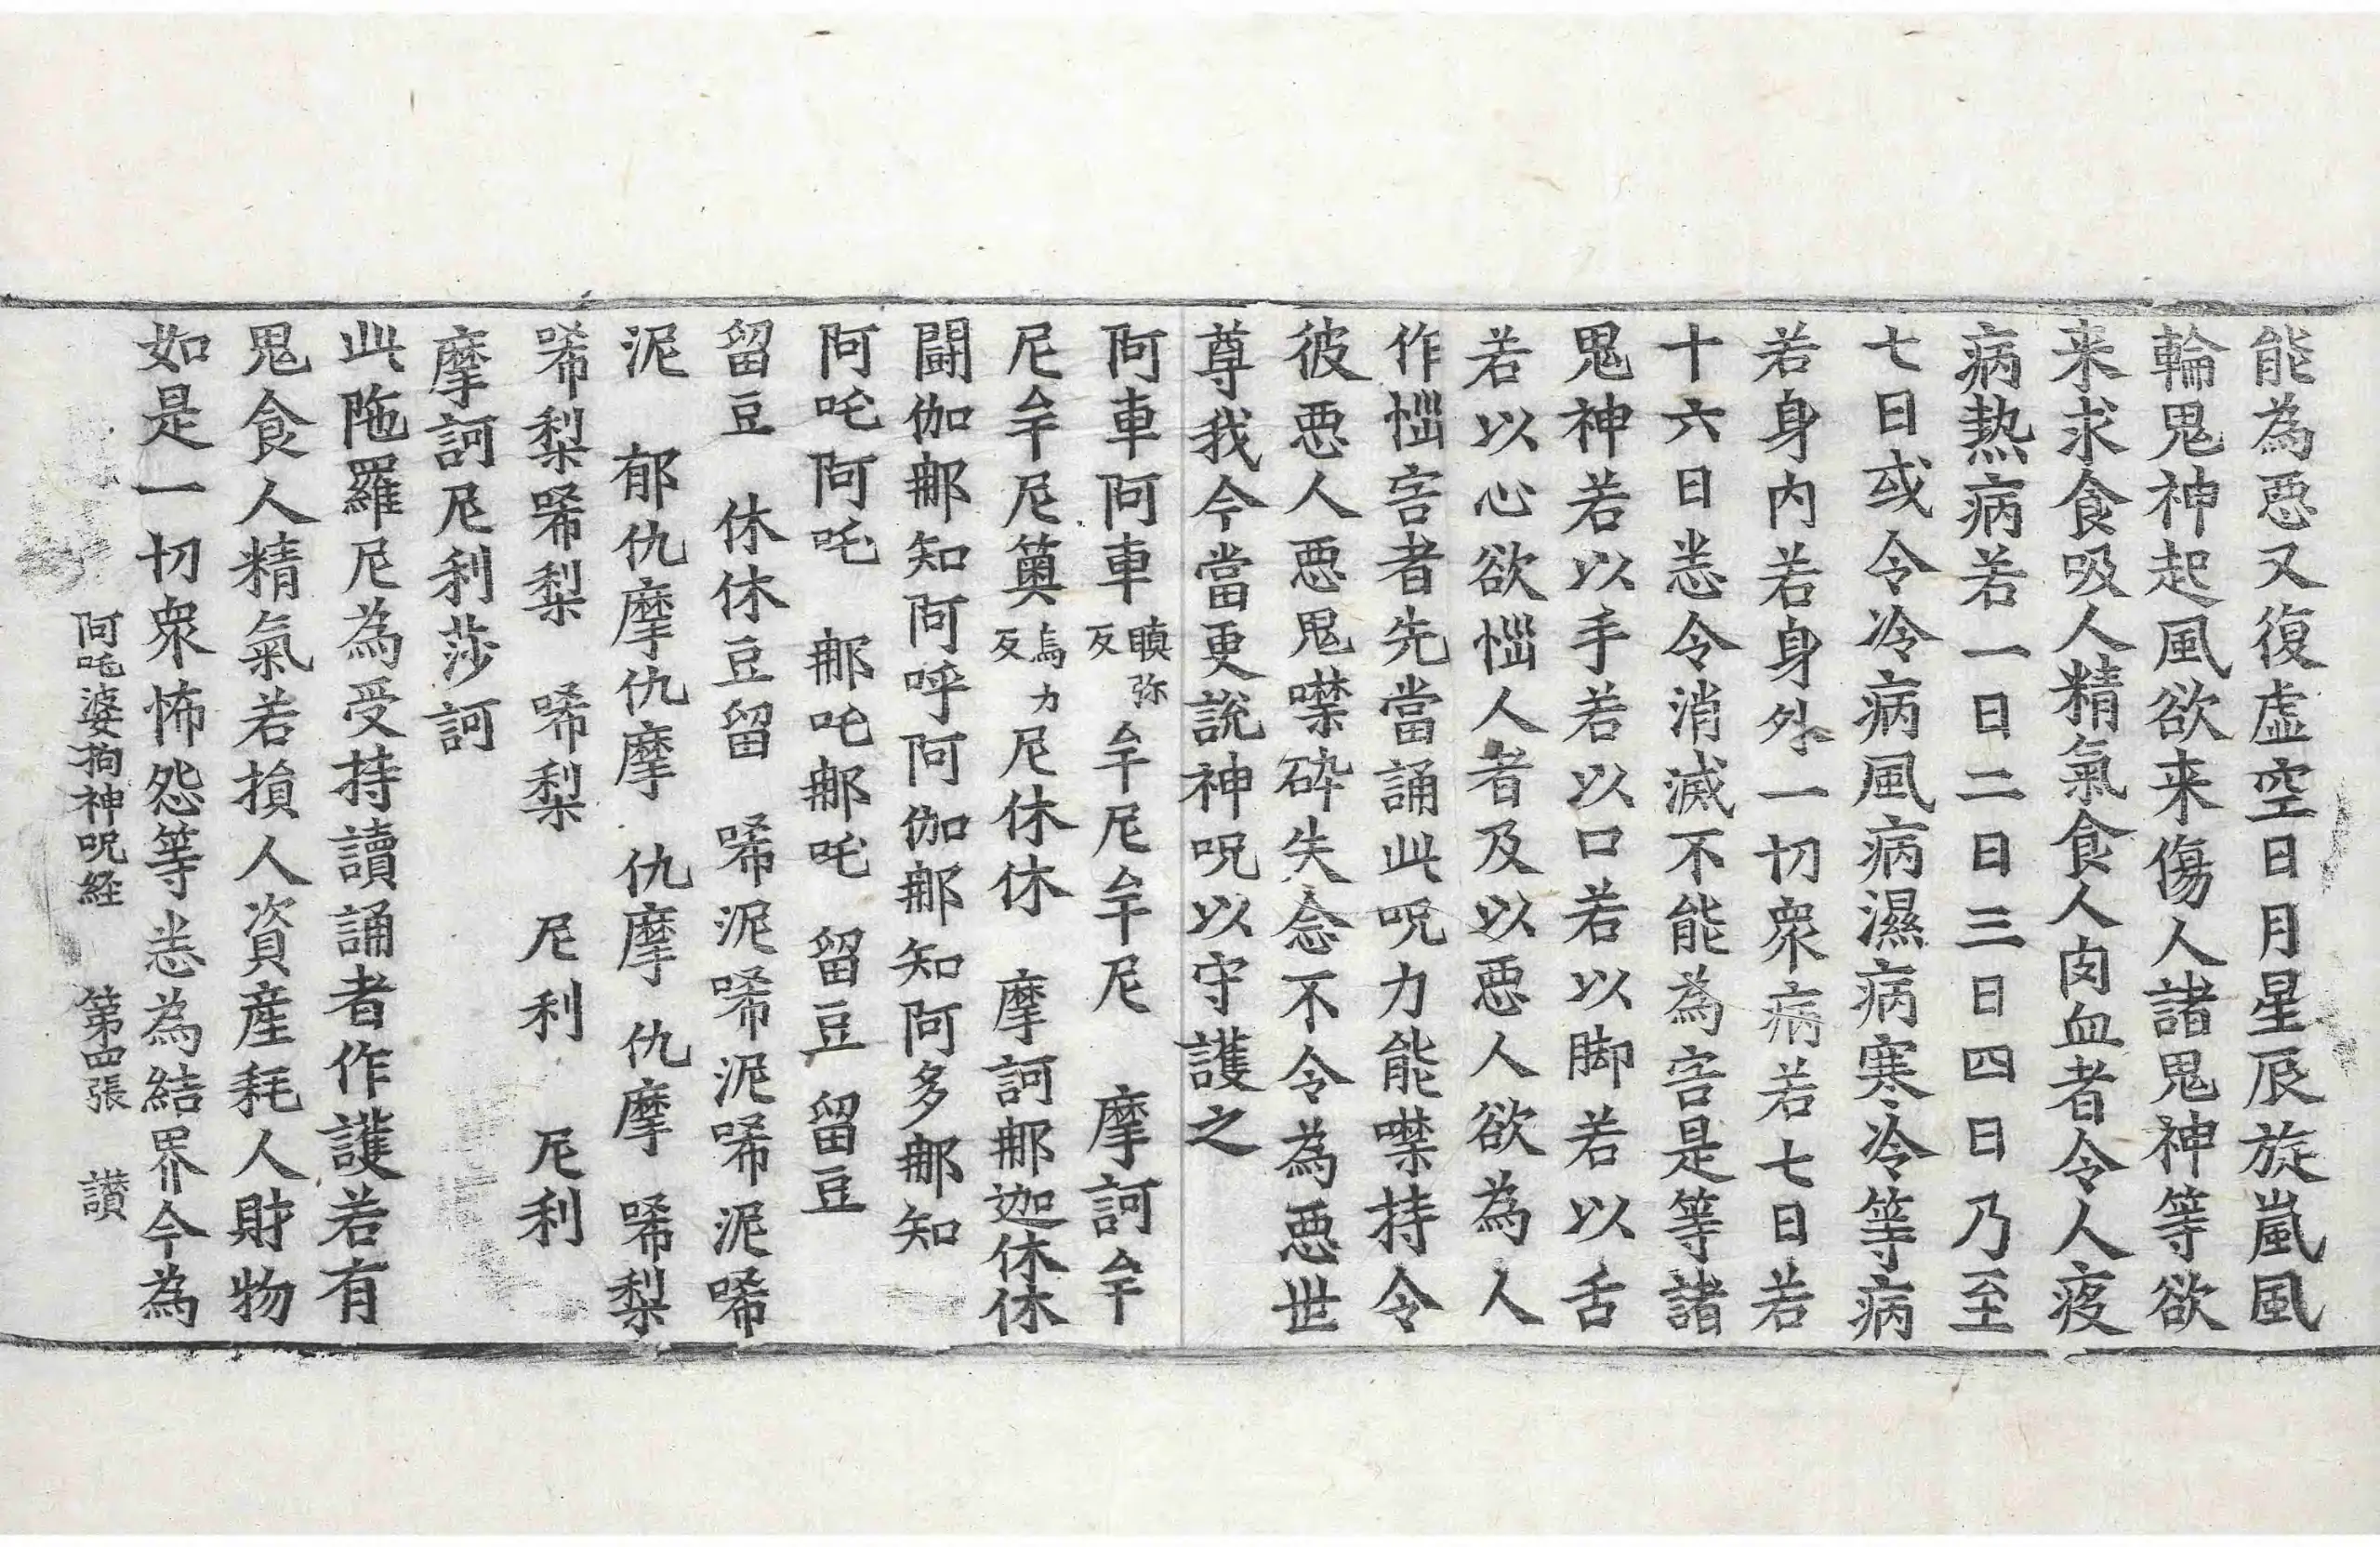 能為悪又復虛空日月星辰旋嵐風
輪鬼神起風欲来傷人諸鬼神等欲
来求食吸人精氣食人肉血者令人疫
病熱病若一日二日三日四日乃至
七日或令冷病風病濕病寒冷等病
若身內若身外一切衆病若七日若
十六日悉令消滅不能為害是等諸
鬼神若以手若以口若以脚若以舌
若以心欲惱人者及以悪人欲為人
作惱害者先當誦此呪力能噤持令
彼悪人悪鬼噤碎失念不令為悪世
尊我今當更說神呪以守護之
阿車阿車瞋弥反牟尼牟尼 摩訶牟
尼牟尼薁烏力反尼休休 摩訶那迦休休
鬪伽那知阿呼阿伽那知阿多那知
阿吒阿吒 那吒那吒 留豆 留豆
留豆 休休豆留 唏泥唏泥唏泥唏
泥 郁仇摩仇摩 仇摩 仇摩 唏梨
唏梨唏梨 唏梨 尼利 尼利
摩訶尼利莎訶
此陁羅尼為受持讀誦者作護若有
鬼食人精氣若損人資産耗人財物
如是一切衆怖怨等悉為結界今為
阿吒婆拘神呪経 第四張 讃